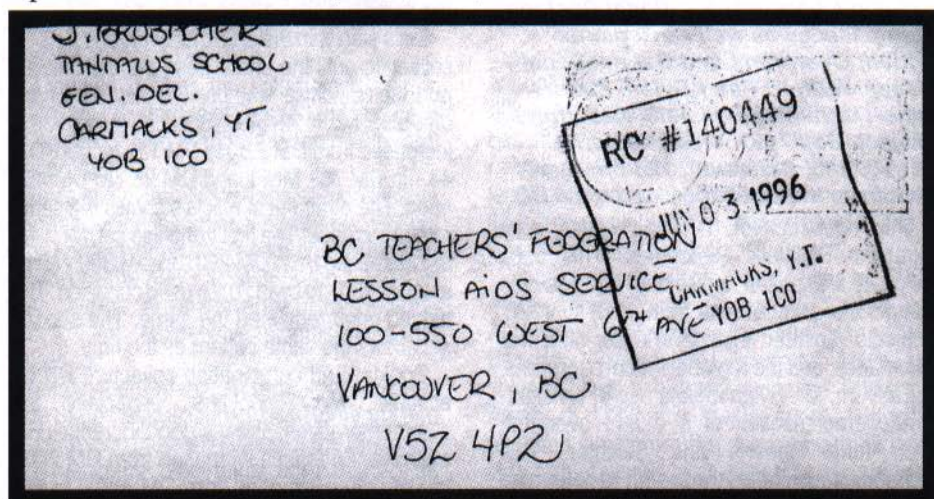 J. BRUBACHER
TANTALUS SCHOOL
GEN. DEL.
CARMACKS, YT
Y0B 1C0
RC #140449
JUN 03 1996
CARMACKS, Y.T.
Y0B 1C0
BC TEACHERS' FEDERATION
LESSON AIDS SERVICE
100-550 WEST 6TH AVE
VANCOUVER, BC
V5Z 4P2